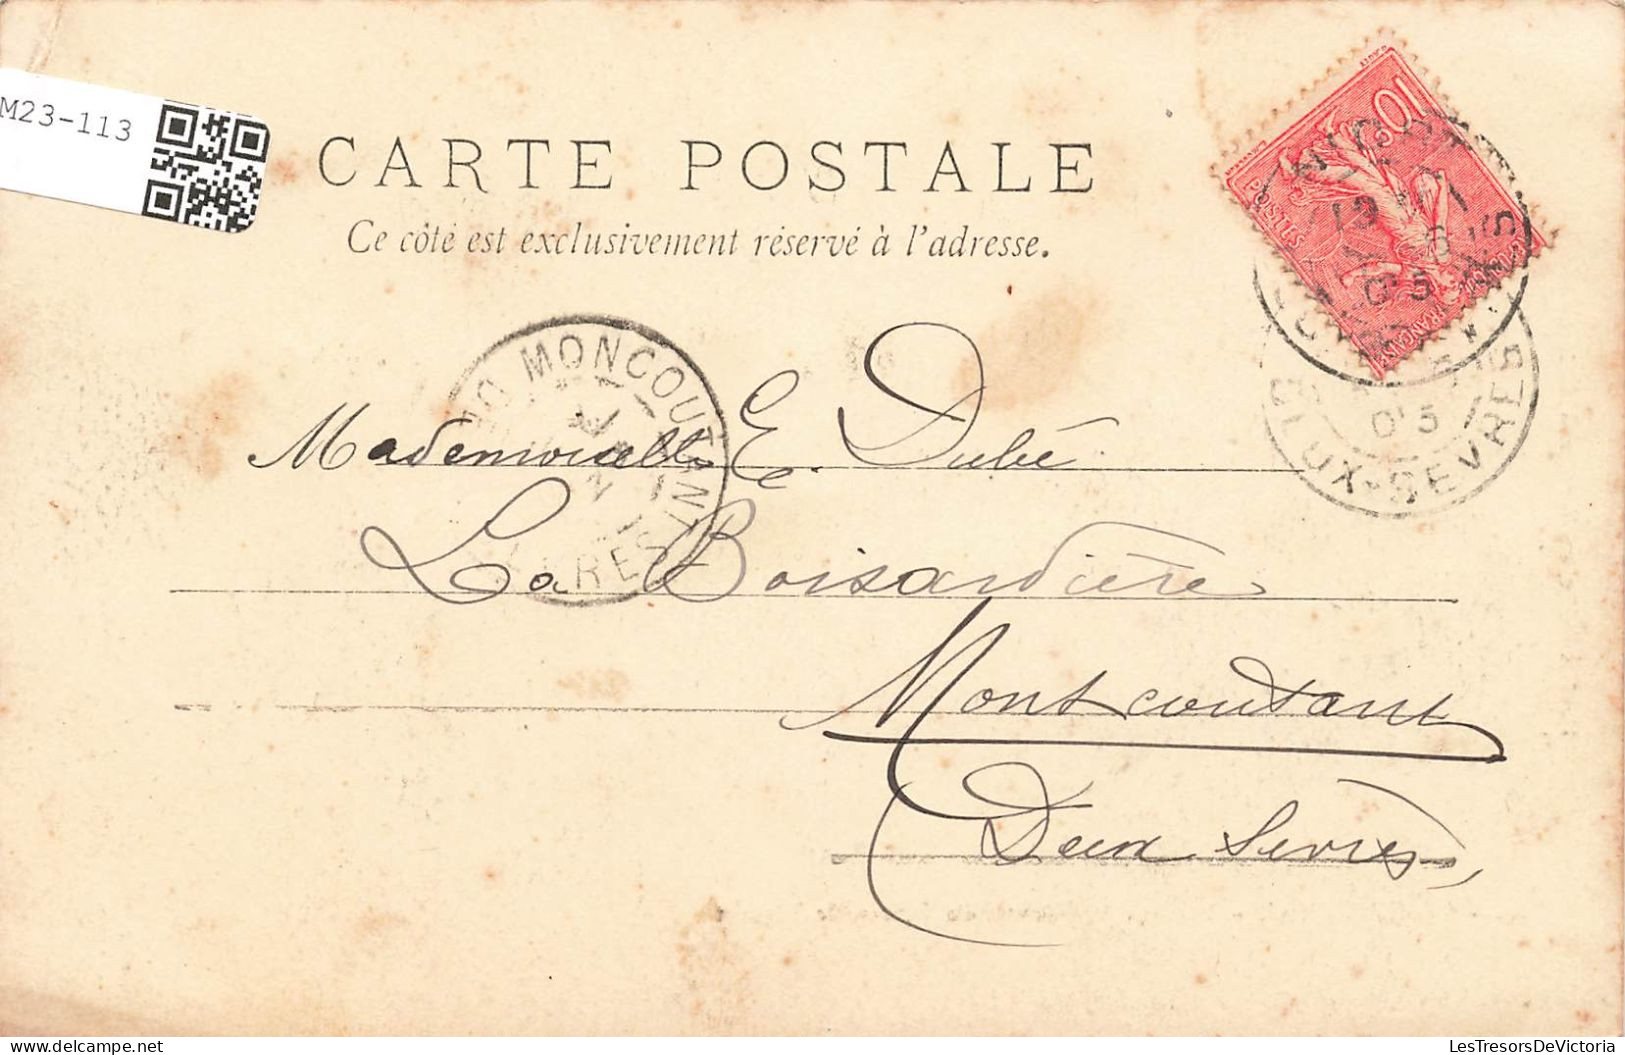 M23-113
CARTE POSTALE
Ce côté est exclusivement réservé à l'adresse.
10
POSTES
MONCOUTANT
05
DEUX-SEVRES
Mademoiselle E. Dubé
La Boisardière
Montcoutant
Deux Sèvres
LesTresorsDeVictoria